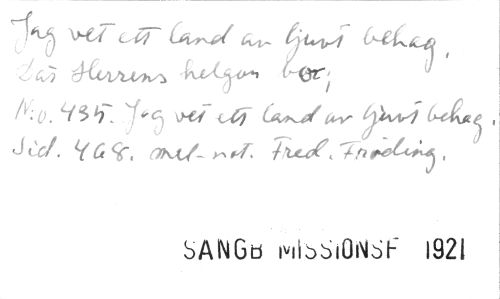 Jag vet ett land av ljuvt behag,
Där Herrens helgon bor;
N:o. 435. Jag vet ett land av ljuvt behag.
Sid. 468. mel-not. Fred. Fröding.
SANGB MISSIONSF 1921